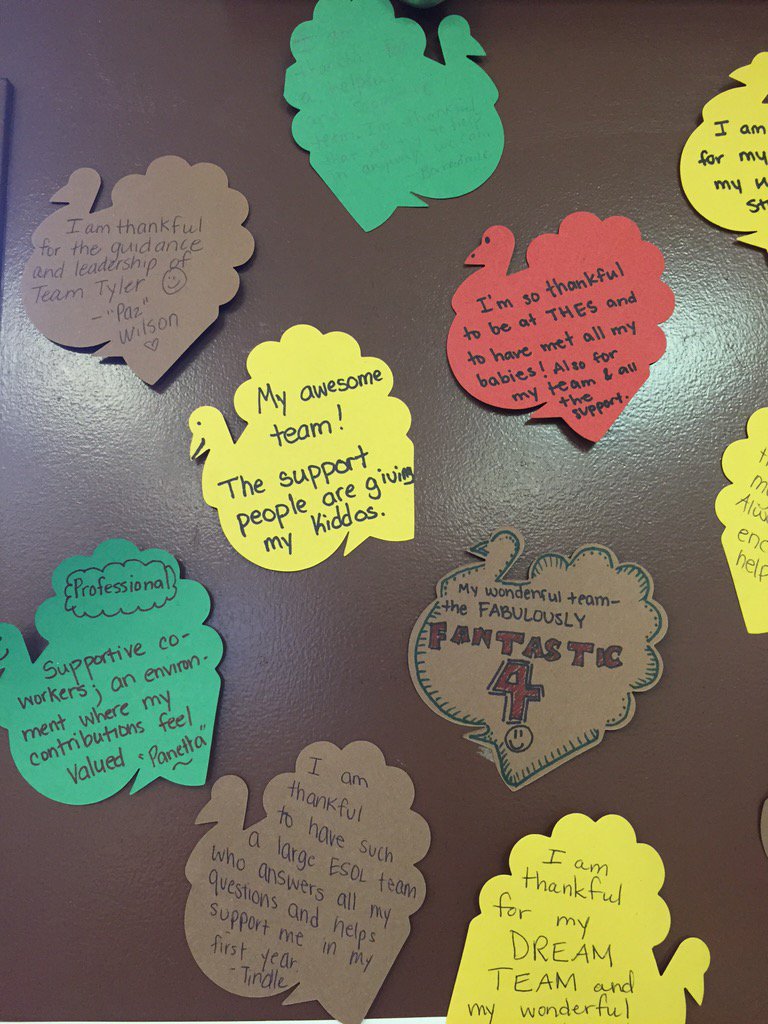 thankful for
a helpful
team. I'm thankful
in anyway I can
I am thankful
for the guidance
and leadership of
Team Tyler
- "Paz"
Wilson
I am
for my
my
I'm so thankful
to be at THES and
to have met all my
babies! Also for
my team & all
the
support.
My awesome
team!
The support
people are giving
my kiddos.
enc
help
Professional
Supportive co-
workers; an environ-
ment where my
contributions feel
valued "Panetta"
My wonderful team-
the FABULOUSLY
FANTASTIC
4
I am
thankful
to have such
a large ESOL team
who answers all my
questions and helps
support me in my
first year.
- Tindle
I am
thankful
for my
DREAM
TEAM and
my wonderful